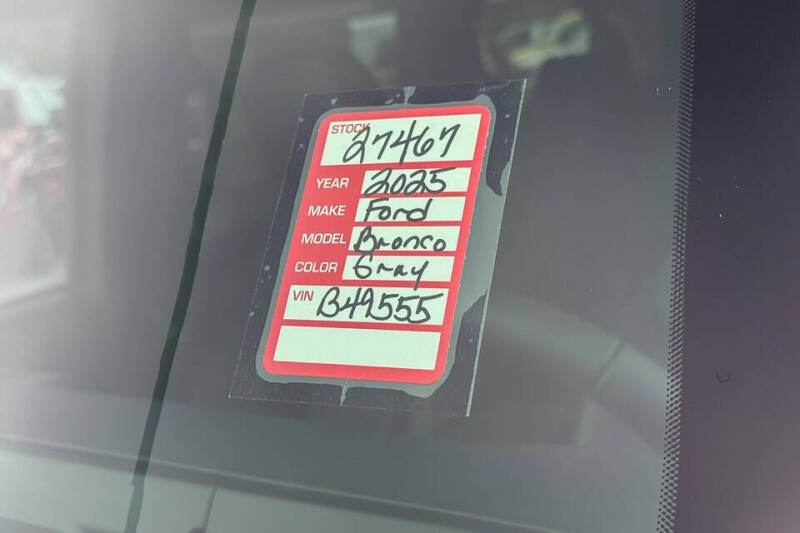 STOCK 27467
YEAR 2025
MAKE Ford
MODEL Bronco
COLOR Gray
VIN B49555